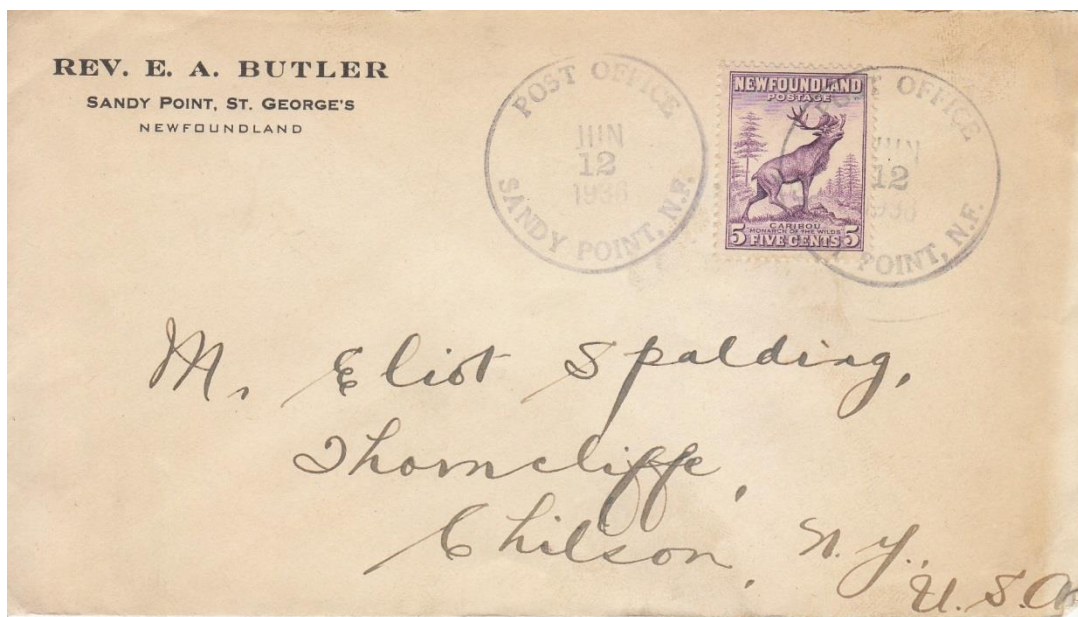 REV. E. A. BUTLER
SANDY POINT, ST. GEORGE'S
NEWFOUNDLAND
POST OFFICE
JUN
12
1936
SANDY POINT, N.F.
NEWFOUNDLAND
POSTAGE
CARIBOU
MONARCH OF THE WILDS
5 FIVE CENTS 5
POST OFFICE
JUN
12
1936
POINT, N.F.
M, Eliot Spalding,
Thorncliffe,
Chilson, N.Y.,
U.S.A